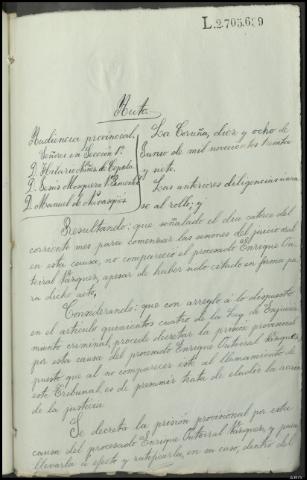 L.2.705.6 9
Auto
Audiencia provincial.
Señores en Sección 1ª
D. Hilario Núñez de Cepeda
D. Jesús Mosquera
D. Manuel de
La Coruña, diez y ocho de
Junio de mil novecientos treinta
y siete.
Las anteriores diligencias únan
se al rollo; y
Resultando: que señalado el día catorce del
corriente mes para comenzar las sesiones del juicio oral
en esta causa, no compareció el procesado Enrique
Vázquez, apesar de haber sido citado en forma pa,
ra dicho acto.
Considerando: que con arreglo á lo dispuesto
en el artículo quinientos cuatro de la Ley de Enjuicia
miento criminal, procede decretar la prisión provisional
por esta causa del procesado Enrique Vázquez,
puesto que al no comparecer ante el llamamiento de
este Tribunal es de presumir trata de eludir la acción
de la justicia.
Se decreta la prisión provisional por esta
causa del procesado Enrique Vázquez, y para
llevarla á efecto y ratificarla, en su caso, dentro del